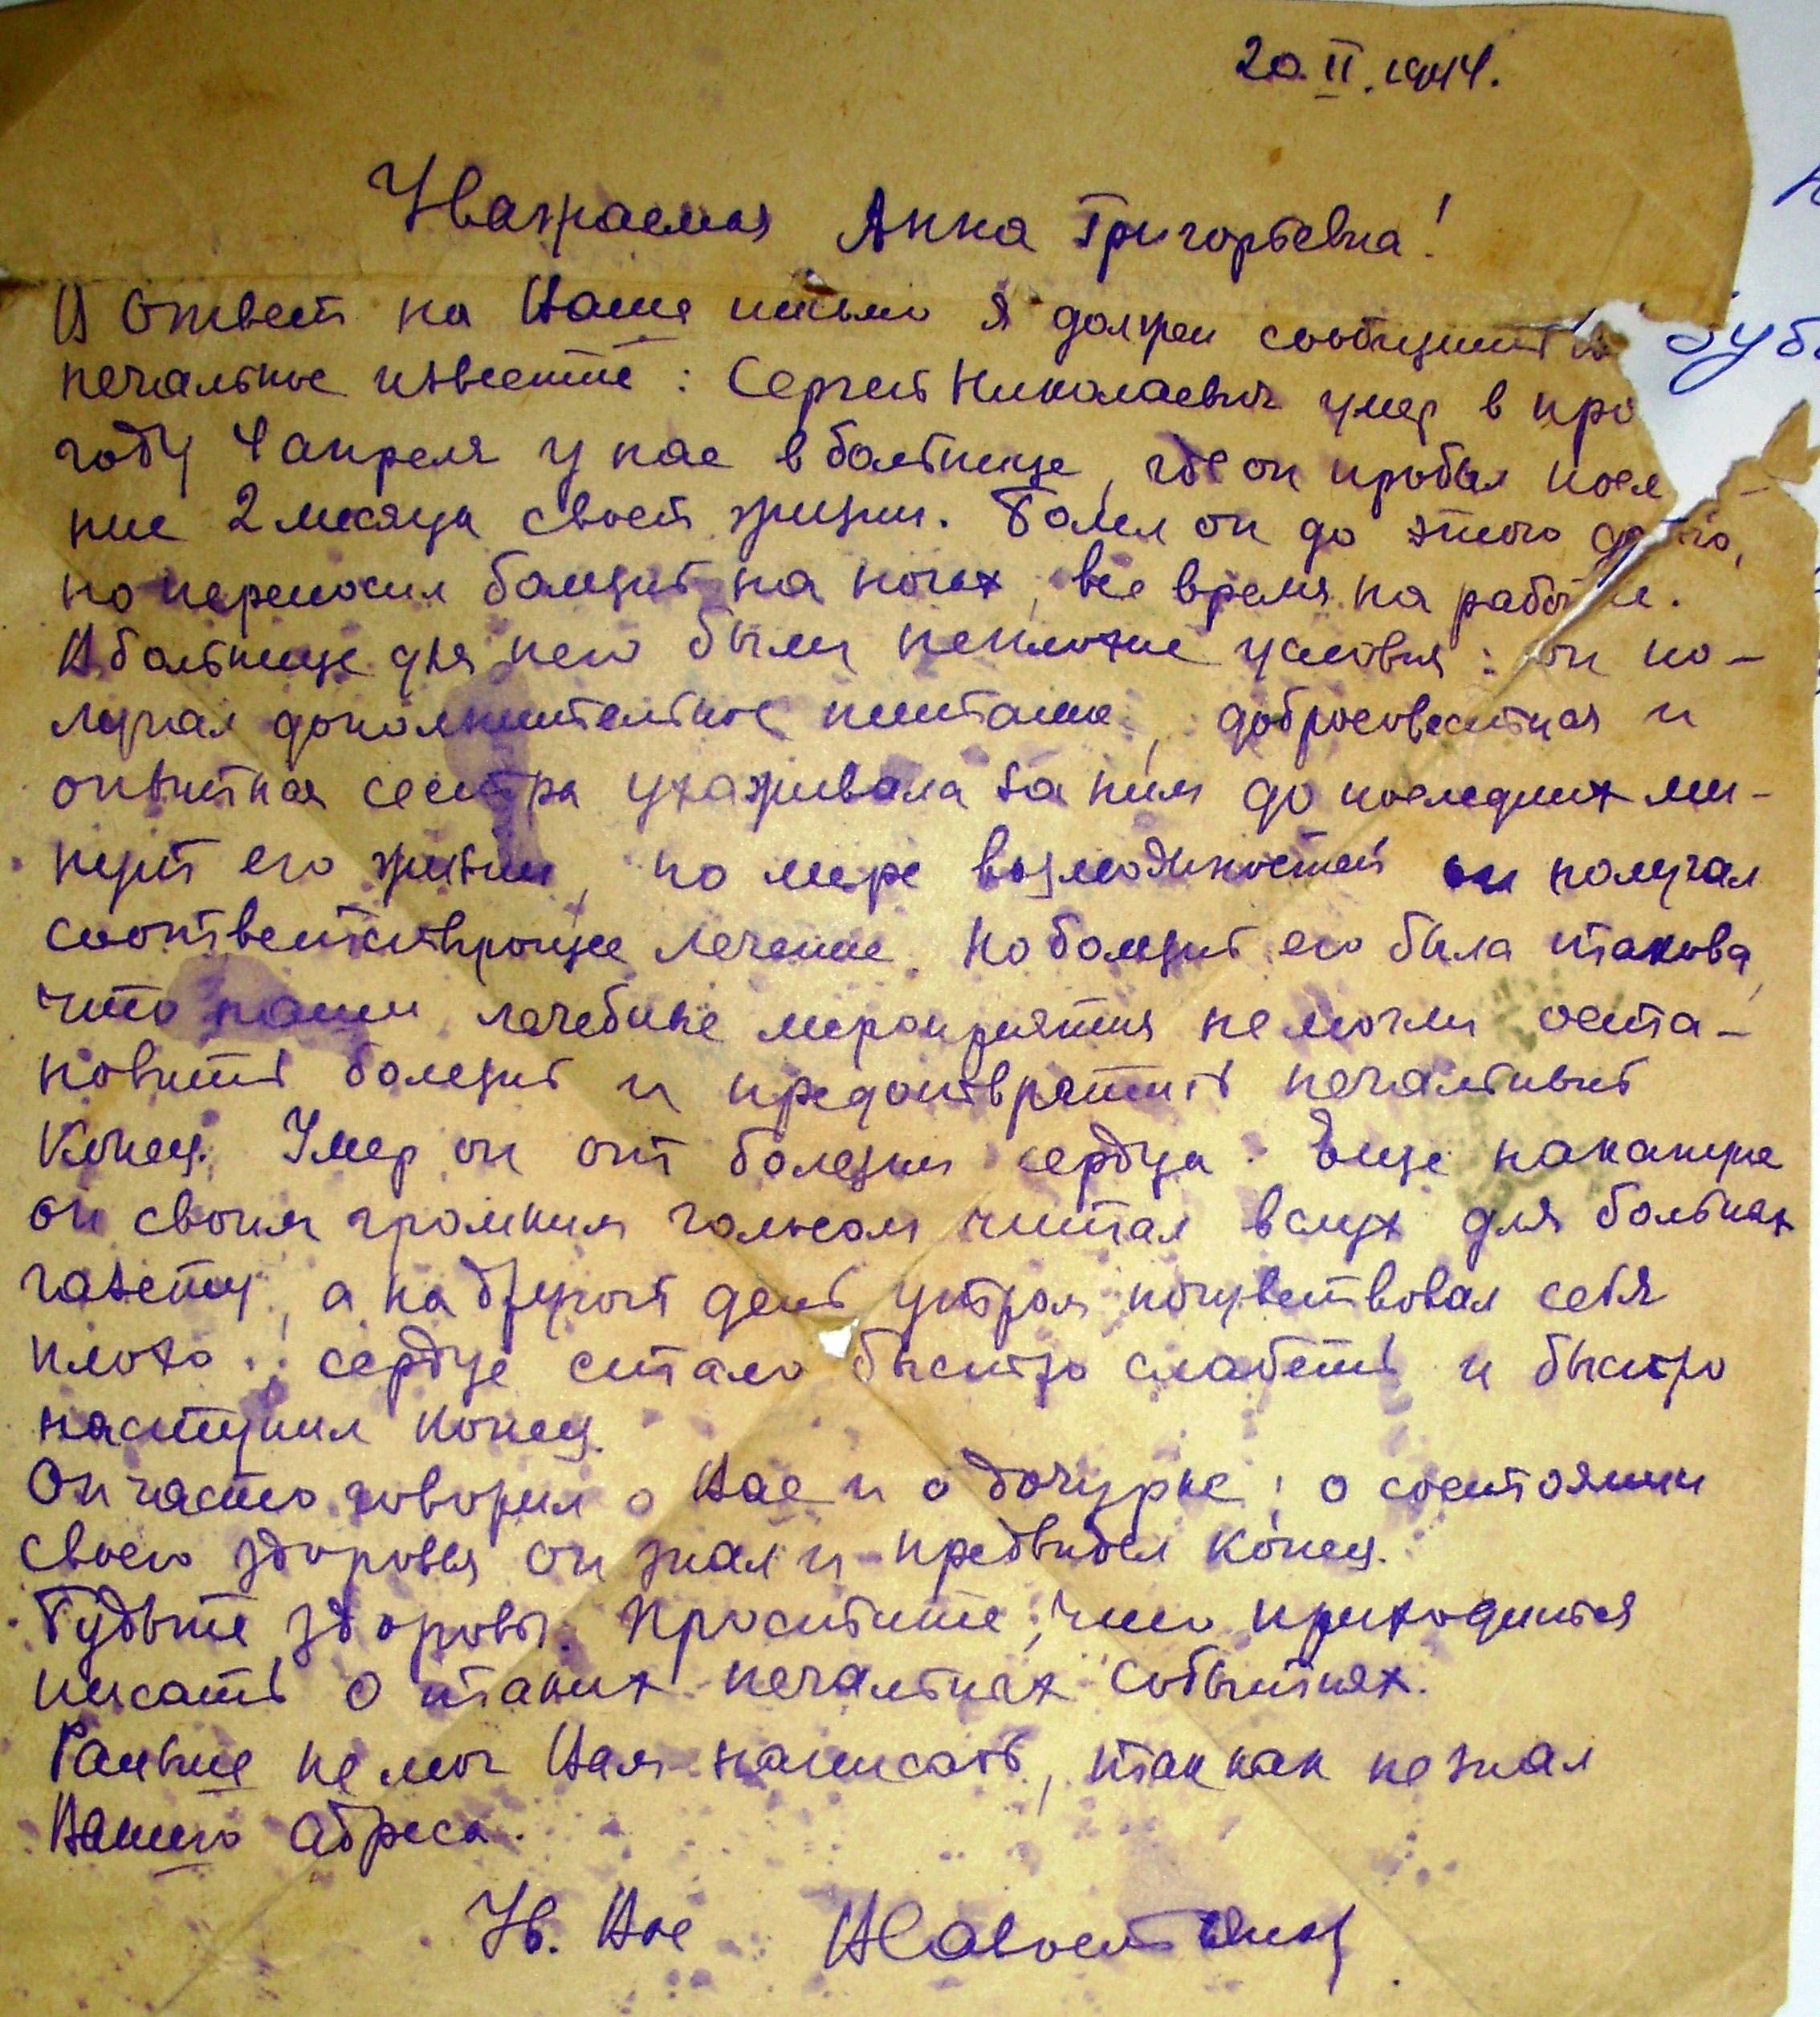 20.II.1944.
Уважаемая Анна Григорьевна!
В ответ на Ваше письмо я должен сообщить
печальное известие: Сергей Николаевич умер в про
году 4 апреля у нас в больнице, где он пробыл посл
ние 2 месяца своей жизни. Болел он до этого долго,
но переносил болезнь на ногах, все время на работе.
В больнице для него были неплохие условия: он по-
лучал дополнительное питание, добросовестная и
опытная сестра ухаживала за ним до последних ми-
нут его жизни, по мере возможностей он получал
соответствующее лечение. Но болезнь его была такова,
что наши лечебные мероприятия не могли оста-
новить болезнь и предотвратить печальный
конец. Умер он от болезни сердца. Еще накануне
он своим громким голосом читал вслух для больных
газету, а на другой день утром почувствовал себя
плохо: сердце стало быстро слабеть и быстро
наступил конец.
Он часто говорил о Вас и о дочурке; о состоянии
своего здоровья он знал и предвидел конец.
Будьте здоровы. Простите, что приходится
писать о таких печальных событиях.
Раньше не мог Вам написать, так как не знал
Вашего адреса.
Ув. Вас